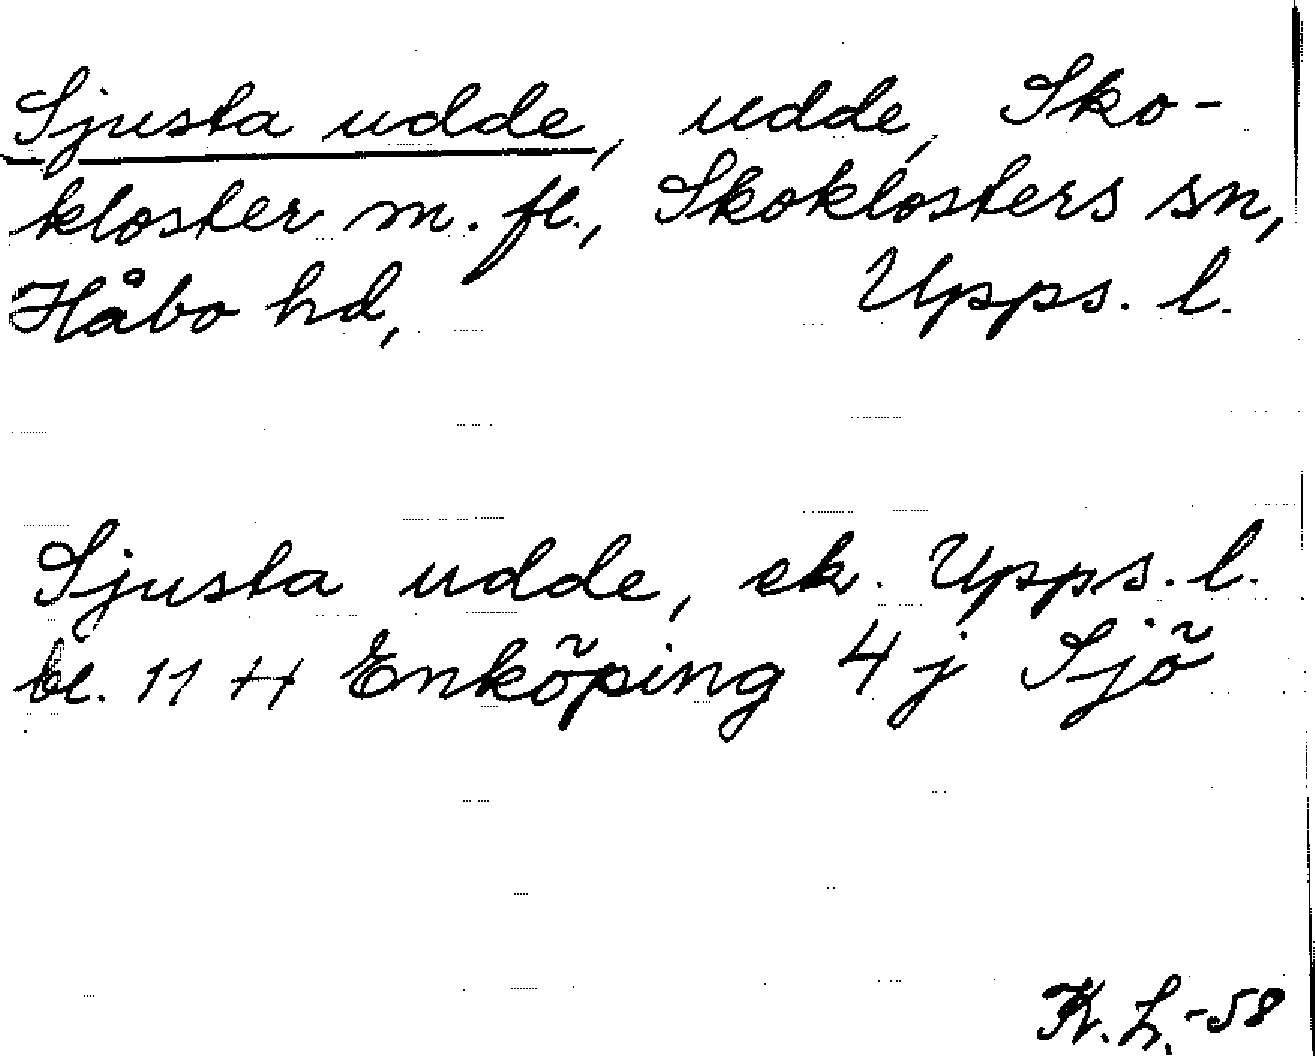 Sjusta udde, udde, Sko-
kloster m. fl., Skoklosters sn,
Håbo hd, Upps. l.
Sjusta udde, ek. Upps. l.
bl. 11 H Enköping 4 j Sjö
K. L. -58